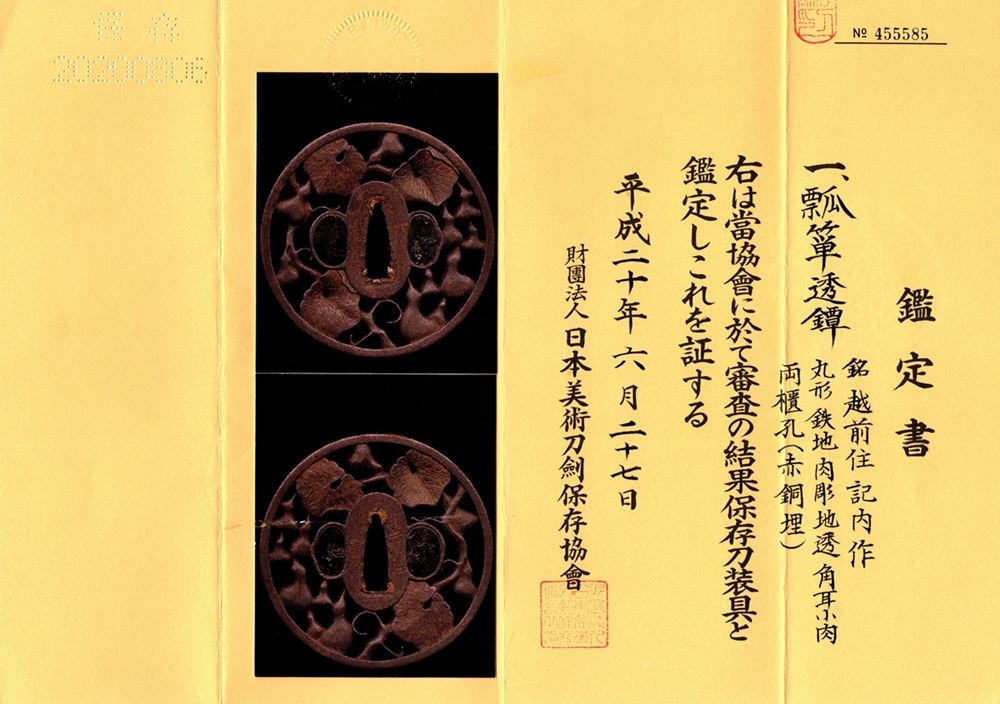 № 455585
鑑定書
一、瓢箪透鐔
銘 越前住記内作
丸形 鉄地 肉彫地透 角耳小肉
両櫃孔(赤銅埋)
右は當協會に於て審査の結果保存刀装具と
鑑定しこれを証する
平成二十年六月二十七日
財團法人 日本美術刀劍保存協會
保存
20200606